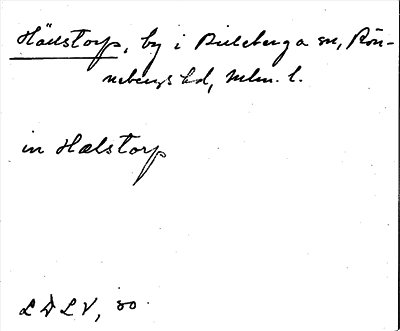 Hällstorp, by i Billeberga sn, Rön-
nebergs hd, Mlm. l.
in Hælstorp
LDLV, 80.